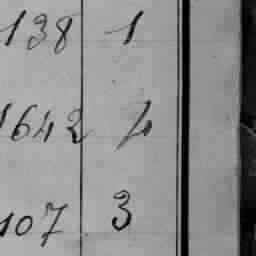 138 1
1642 4
107 3